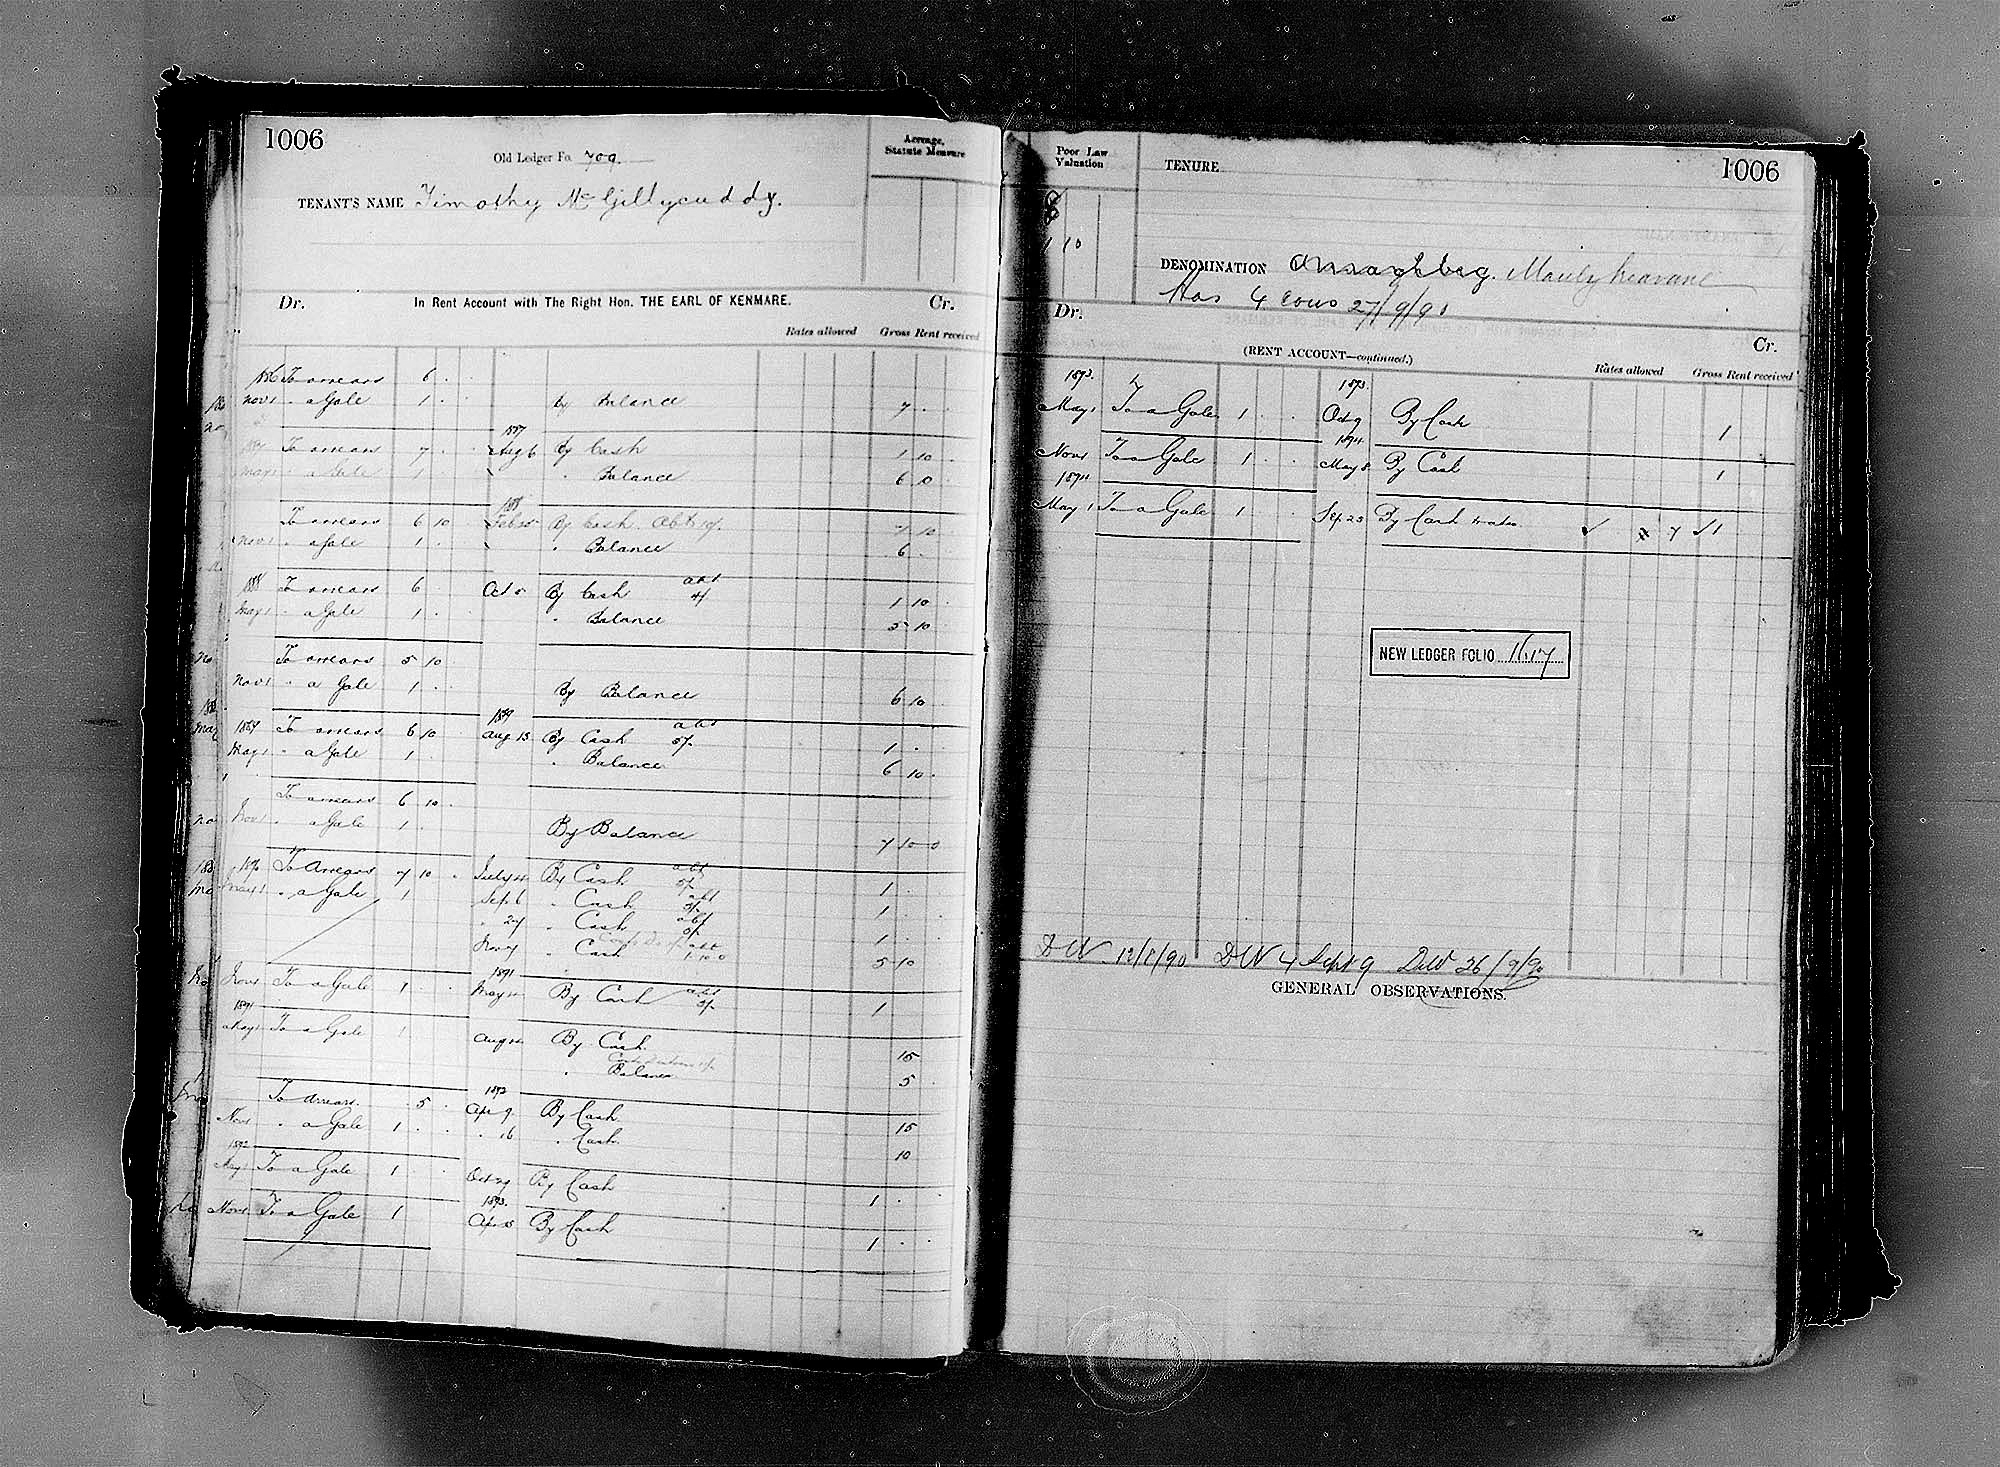 1006
Old Ledger Fo. 709.
Acreage,
Statute Measure
TENANT'S NAME Timothy McGillycuddy.
Dr. In Rent Account with The Right Hon. THE EARL OF KENMARE. Cr.
Rates allowed Gross Rent received
1886 To arrears 6 . .
Nov 1 " a Gale 1 . . By Balance 7 . .
1887 To arrears 7 . . 1887 Aug 6 By Cash 1 10 .
May 1 " a Gale 1 " Balance 6 10 .
To arrears 6 10 1888 Feb By Cash Abt 10/- 1 10 .
Nov 1 " a Gale 1 . " Balance 6 .
1888 To arrears 6 . Oct 5 By Cash abt 4/ 1 10 .
May 1 " a Gale 1 . " Balance 5 10
To arrears 5 10
Nov 1 " a Gale 1 . . By Balance 6 10 .
1889 To arrears 6 10 1889 Aug 13 By Cash abt 5/- 1 .
May 1 " a Gale 1 . " Balance 6 10 .
To arrears 6 10 .
Nov 1 " a Gale 1 . By Balance 7 10 0
1890 To Arrears 7 10 . July By Cash abt 5/- 1 .
May 1 " a Gale 1 Sept 6 " Cash abt 1 . .
" 27 " Cash abt 1 . .
Nov " Cash abt 1.10.0 5 10 .
Nov 1 To a Gale 1 . . 1891 May By Cash abt 1
1891
May 1 To a Gale 1 Aug By Cash. 15
" Balance 5 .
To Arrears . 5 . 1892 Apr 9 By Cash 15
Nov 1 " a Gale 1 . . " 16 " Cash. 10
1892
May 1 To a Gale 1 . . Oct 29 By Cash 1 . .
Nov 1 To a Gale 1 1893. Apr By Cash 1 . .
Poor Law
Valuation
TENURE
1006
1 10
DENOMINATION Anaghbeg.
Has 4 cows 27/9/90
Dr. Cr.
(RENT ACCOUNT—continued.)
Rates allowed Gross Rent received
1893. 1893.
May 1 To a Gale 1 . . Oct 9 By Cash 1
Nov 1 To a Gale 1 . . 1894 May 8 By Cash 1
1894
May 1 To a Gale 1 . . Sep 23 By Cash & rates 7 1
NEW LEDGER FOLIO 1617
DW 12/8/90 DW 4 Sept 9 DW 26/9/90
GENERAL OBSERVATIONS.